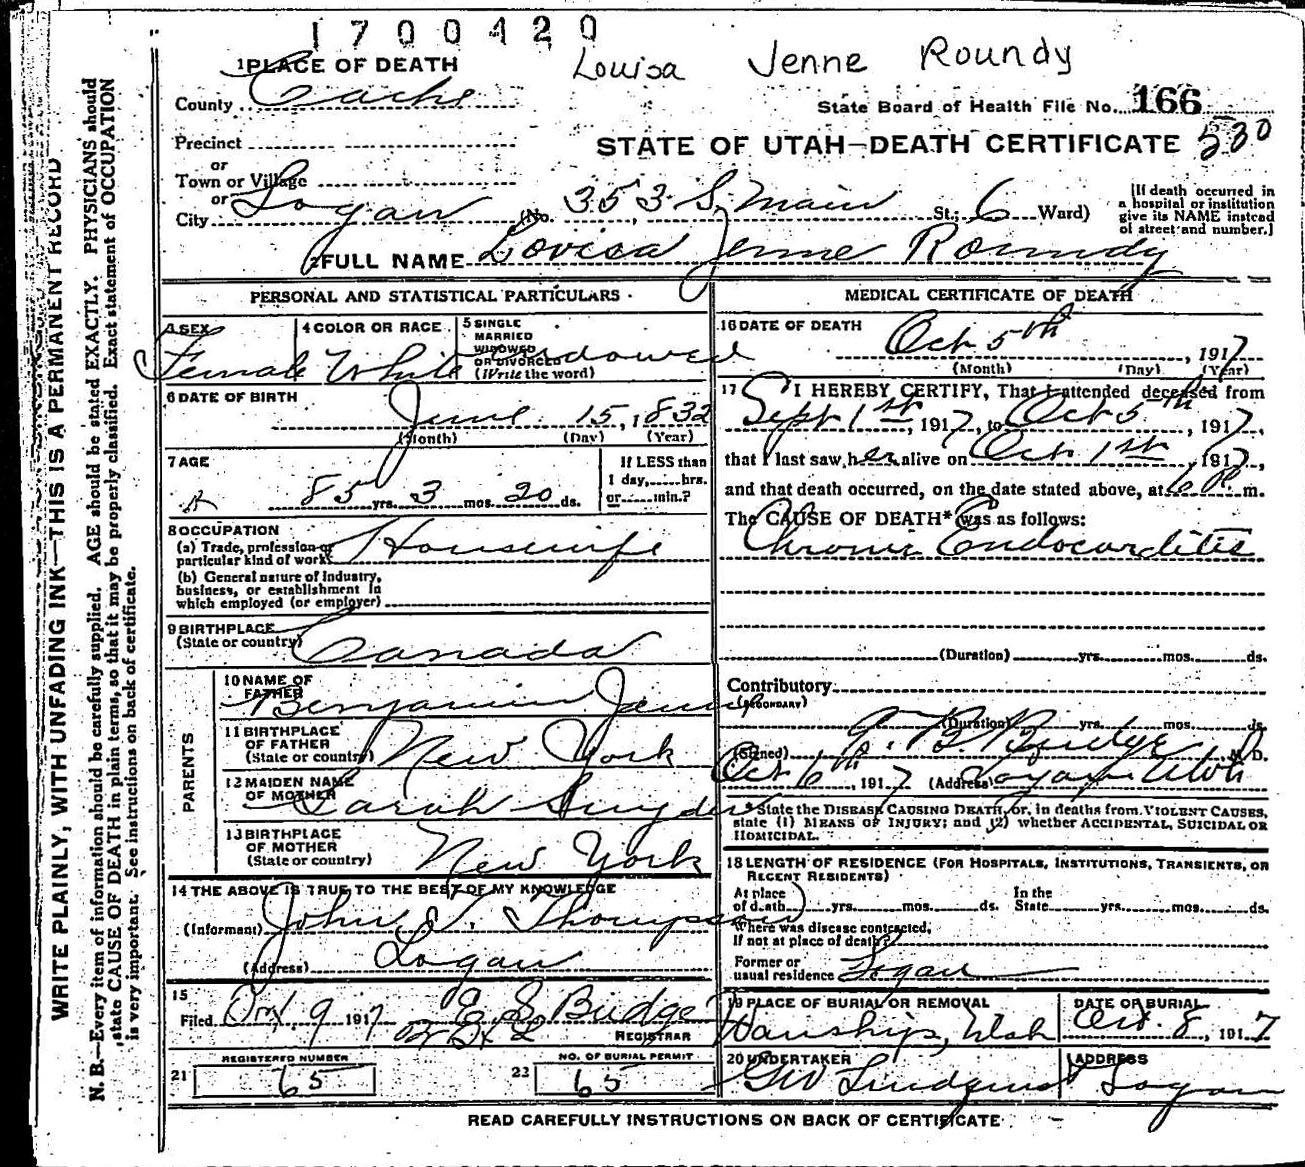 1700420
Louisa Jenne Roundy
1 PLACE OF DEATH
County Cache
State Board of Health File No. 166
Precinct
STATE OF UTAH—DEATH CERTIFICATE 530
or
Town or Village
or
City Logan (No. 353 S. Main St.; 6 Ward)
[If death occurred in
a hospital or institution
give its NAME instead
of street and number.]
2 FULL NAME Lovisa Jenne Roundy
PERSONAL AND STATISTICAL PARTICULARS
3 SEX
Female
4 COLOR OR RACE
White
5 SINGLE
MARRIED
WIDOWED
OR DIVORCED
(Write the word)
Widowed
6 DATE OF BIRTH
June 15, 1832
(Month) (Day) (Year)
7 AGE
85 yrs. 3 mos. 20 ds.
If LESS than
1 day,......hrs.
or......min.?
8 OCCUPATION
(a) Trade, profession or
particular kind of work Housewife
(b) General nature of industry,
business, or establishment in
which employed (or employer)
9 BIRTHPLACE
(State or country) Canada
PARENTS
10 NAME OF
FATHER
Benjamin Jenne
11 BIRTHPLACE
OF FATHER
(State or country) New York
12 MAIDEN NAME
OF MOTHER
Sarah Snyder
13 BIRTHPLACE
OF MOTHER
(State or country) New York
14 THE ABOVE IS TRUE TO THE BEST OF MY KNOWLEDGE
(Informant) John T. Thompson
(Address) Logan
15
Filed Oct 9 1917 E S Budge
REGISTRAR
REGISTERED NUMBER
21 65
NO. OF BURIAL PERMIT
22 65
MEDICAL CERTIFICATE OF DEATH
16 DATE OF DEATH
Oct 5th, 1917
(Month) (Day) (Year)
17 I HEREBY CERTIFY, That I attended deceased from
Sept 1st, 1917, to Oct 5th, 1917,
that I last saw her alive on Oct 1st, 1917,
and that death occurred, on the date stated above, at 6 P m.
The CAUSE OF DEATH* was as follows:
Chronic Endocarditis
(Duration) yrs. mos. ds.
Contributory
(SECONDARY)
(Duration) yrs. mos. ds.
(Signed) Budge M. D.
Oct 6th, 1917 (Address) Logan Utah
* State the DISEASE CAUSING DEATH, or, in deaths from VIOLENT CAUSES,
state (1) MEANS OF INJURY; and (2) whether ACCIDENTAL, SUICIDAL OR
HOMICIDAL.
18 LENGTH OF RESIDENCE (FOR HOSPITALS, INSTITUTIONS, TRANSIENTS, OR
RECENT RESIDENTS)
At place
of death yrs. mos. ds.
In the
State yrs. mos. ds.
Where was disease contracted,
If not at place of death?
Former or
usual residence Logan
19 PLACE OF BURIAL OR REMOVAL
Wanship, Utah
DATE OR BURIAL
Oct. 8, 1917
20 UNDERTAKER
GW Lindquist
ADDRESS
Logan
READ CAREFULLY INSTRUCTIONS ON BACK OF CERTIFICATE
WRITE PLAINLY, WITH UNFADING INK—THIS IS A PERMANENT RECORD
N. B.—Every item of information should be carefully supplied. AGE should be stated EXACTLY. PHYSICIANS should
state CAUSE OF DEATH in plain terms, so that it may be properly classified. Exact statement of OCCUPATION
is very important. See instructions on back of certificate.